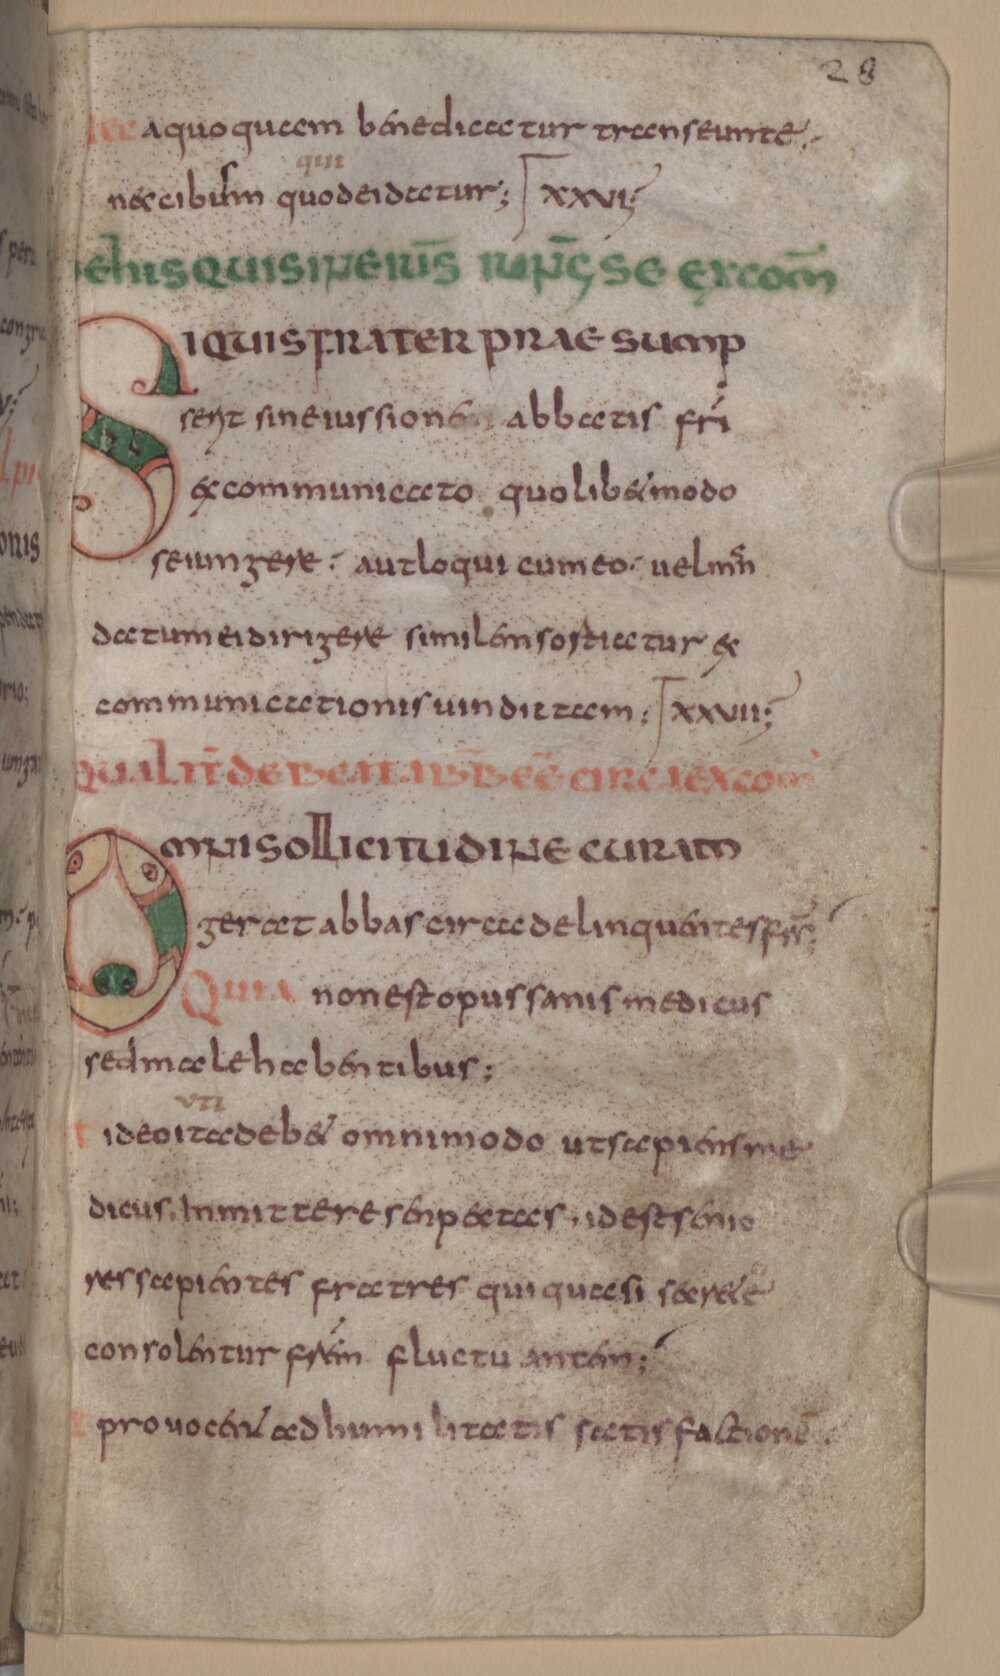 28
nec a quoquam benedicatur transeunte.
qui
nec cibum quod ei datur; XXVI;
De his qui sine ius̄ iungse excom̄
Si quis frater praesump
serit sine iussione abbatis fri
excommunicato quolibet modo
se iungere · aut loqui cum eo · vel man
datum ei dirigere similem sortiatur ex
communicationis vindictam; XXVII;
Qualit̄ debeat abb eē circa excom̄
Omni sollicitudine curam
gerat abbas circa delinquentes frs;
Quia non est opus sanis medicus
sed male habentibus;
uti
Et ideo ita debet omnimodo ut sapiens me
dicus. Inmittere senpectas, id est senio
res sapientes fratres qui quasi secrete
consolentur frem fluctuantem;
Et provocent ad humilitatis satisfactionē.